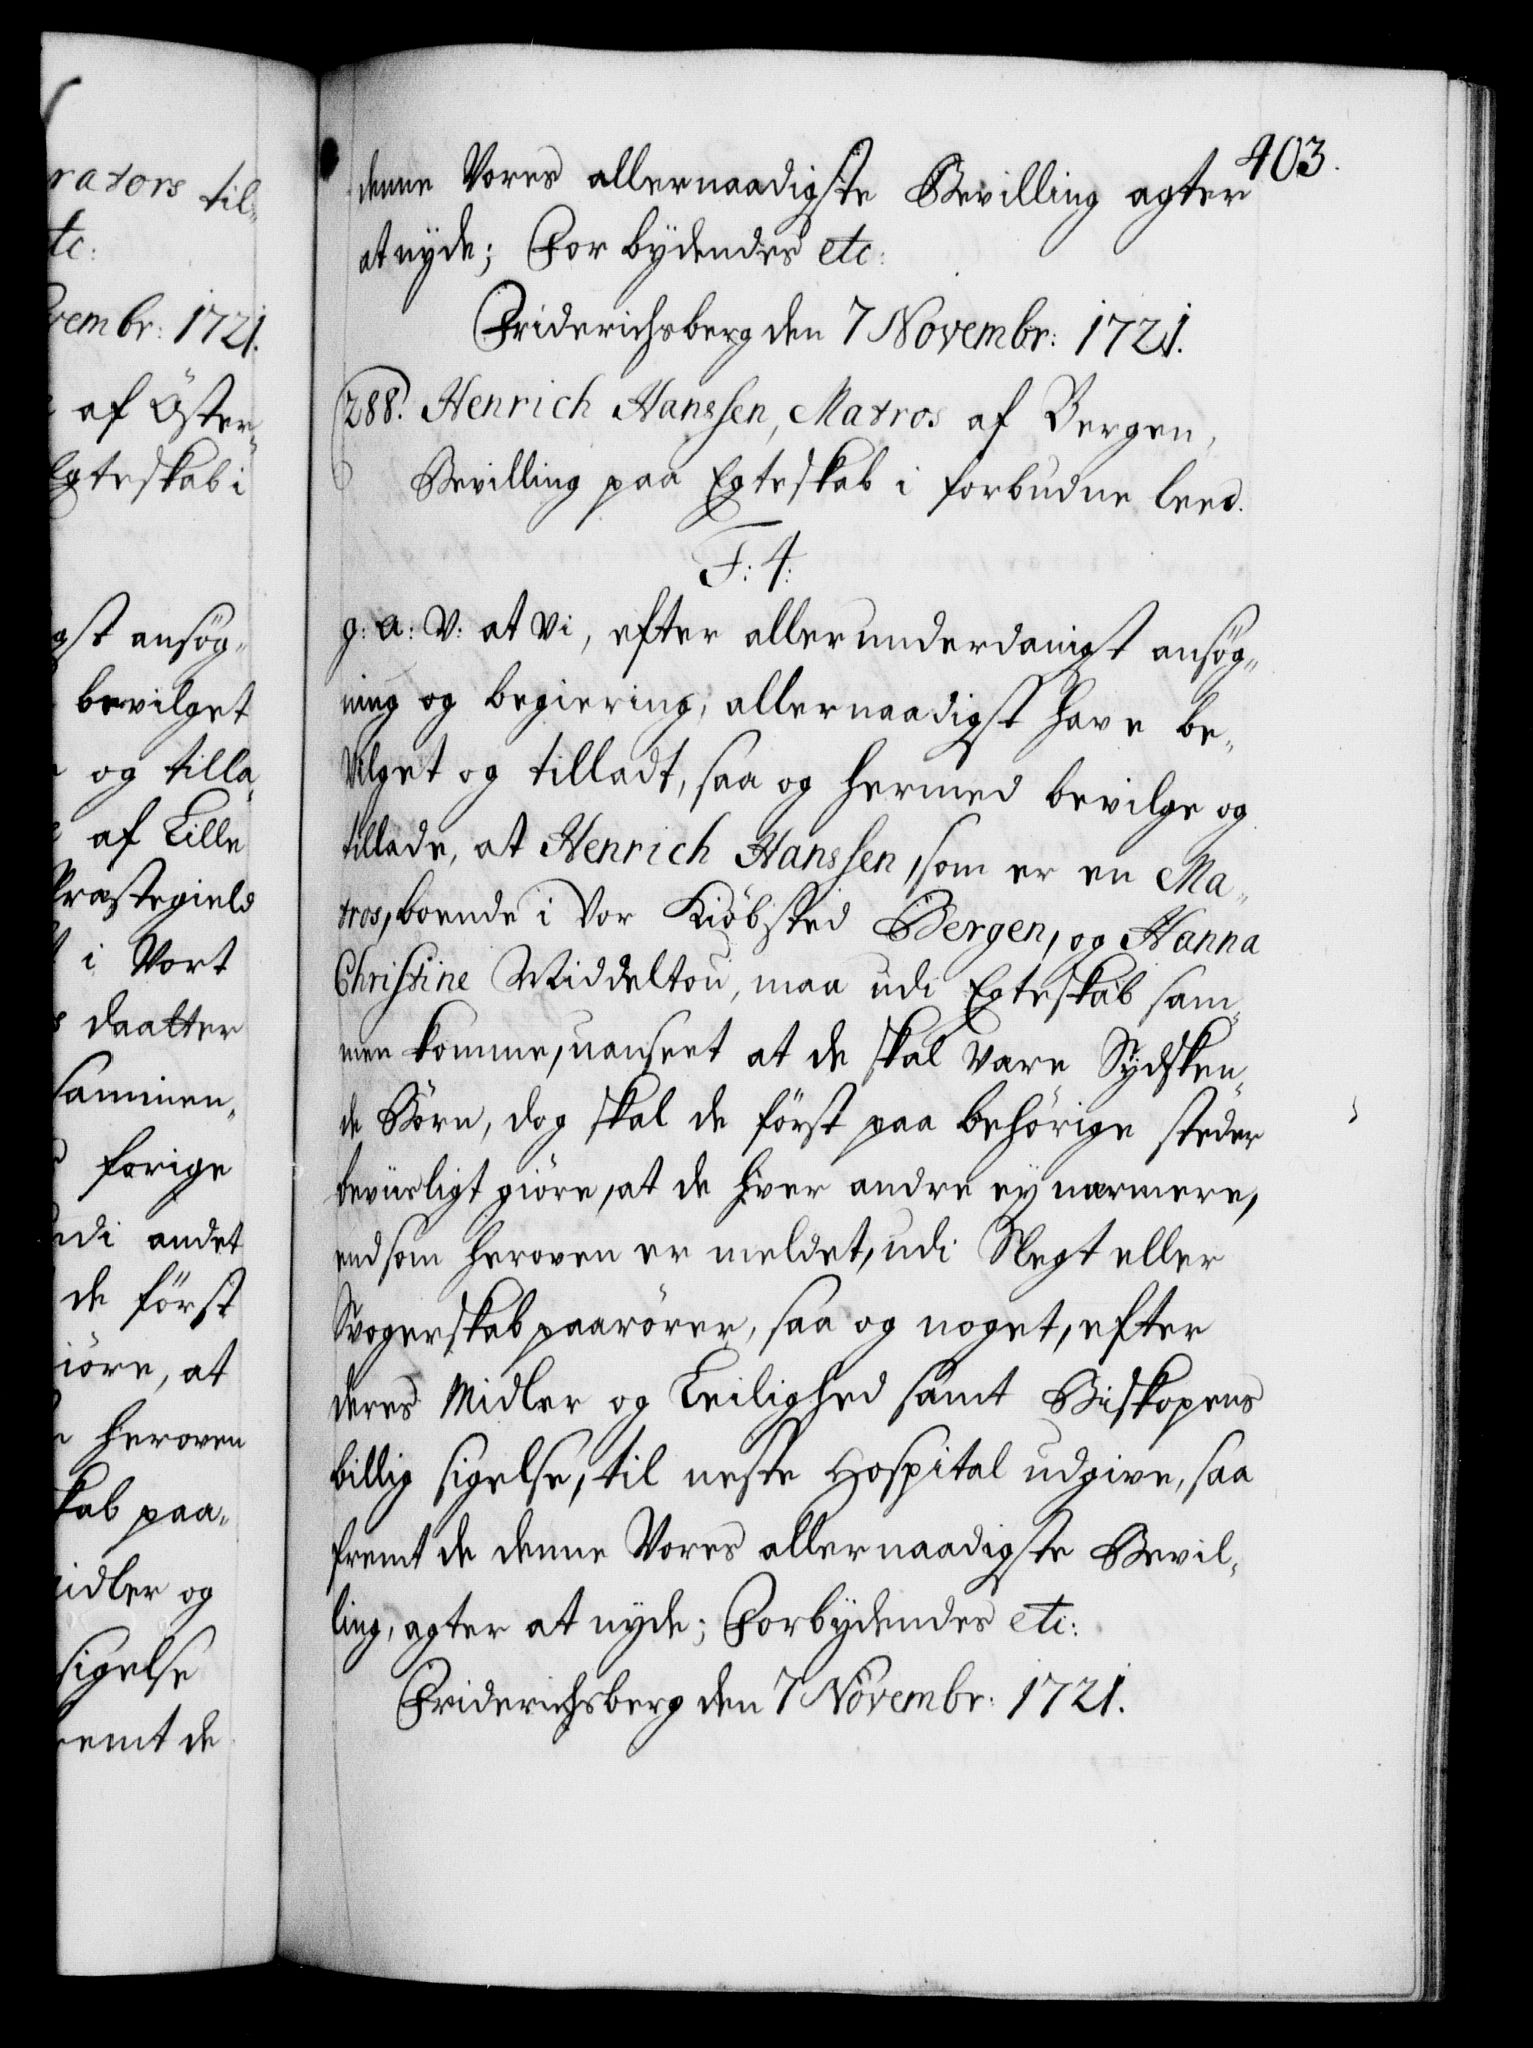 rators til-
tc:
vembr: 1721.
af Öster-
Egteskab i
gst ansøg-
bevilget
og tilla-
af Lille
Præstegield
i Vort
daatter
sammen-
forige
udi andet
de først
iöre, at
heroven
kab paa-
idler og
sigelse
remt de
403.
denne Vores allernaadigste Bevilling agter
at nyde; Forbydendes etc:
Friderichsberg den 7 Novembr: 1721.
288. Henrich Hanssen, Matros af Bergen,
Bevilling paa Egteskab i forbudne leed.
F: 4:
g: a: V: at Vi, efter allerunderdanigst ansøg-
ning og begiering, allernaadigst have be-
vilget og tilladt, saa og hermed bevilge og
tillade, at Henrich Hanssen, som er en Ma-
tros, boende i Vor Kiöbsted Bergen, og Hanna
Christine Middeltou, maa udi Egteskab sam-
men komme, uanseet at de skal være Sydsken-
de Börn, dog skal de först paa behörige steder
beviisligt giöre, at de hver andre ey nærmere,
end som heroven er meldet, udi Slegt eller
Svogerskab paarörer, saa og noget, efter
deres Midler og Leilighed samt Biskopens
billig sigelse, til neste Hospital udgive, saa
fremt de denne Vores allernaadigste Bevil-
ling, agter at nyde; Forbydendes etc:
Friderichsberg den 7 Novembr: 1721.